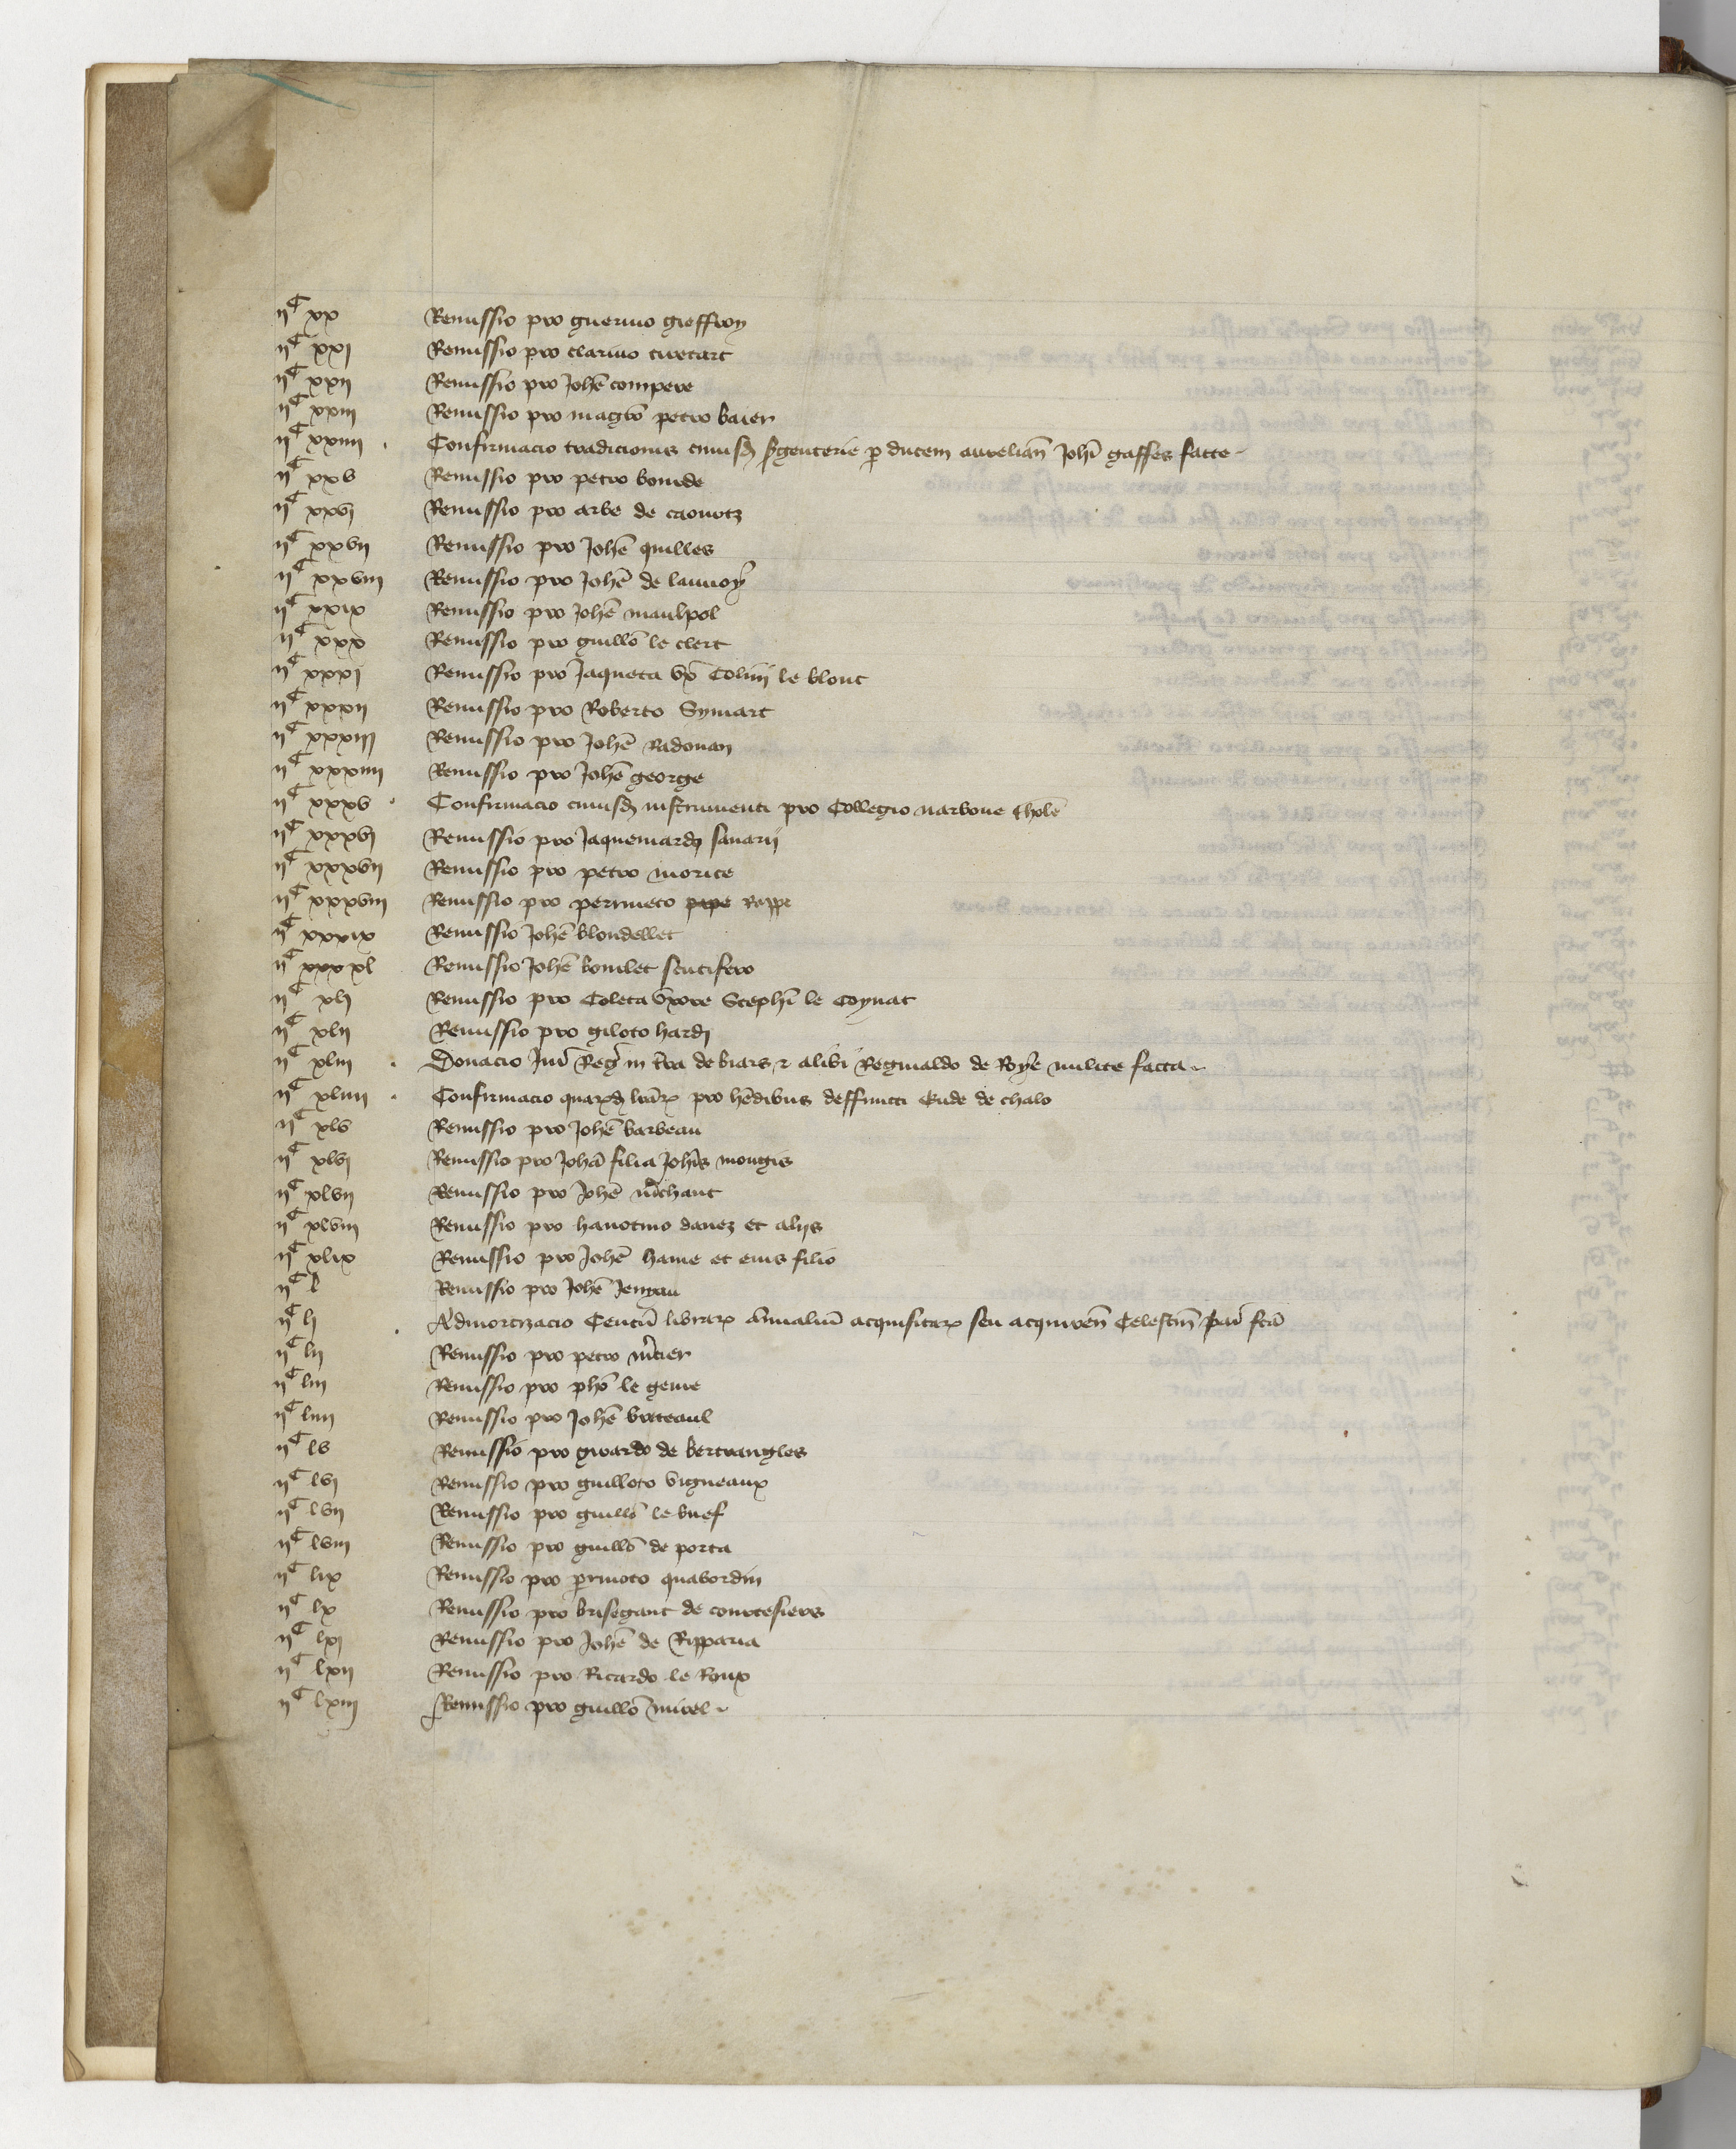 IIᶜ XX Remissio pro guerino gieffroy
IIᶜ XXI Remissio pro clarino
IIᶜ XXII Remissio pro Johē compere
IIᶜ XXIII Remissio pro magrō petro baier
IIᶜ XXIIII Confirmacio tradicionis cuiusd̄ sergenterie p ducem aurelian̄ Johī gasses facte
IIᶜ XXV Remissio pro petro bonide
IIᶜ XXVI Remissio pro de
IIᶜ XXVII Remissio pro Johē quilles
IIᶜ XXVIII Remissio pro Johē de launoy
IIᶜ XXIX Remissio pro Johē maulpol
IIᶜ XXX Remissio pro guillō le clerc
IIᶜ XXXI Remissio pro Jaqueta vx̄ Colini le blont
IIᶜ XXXII Remissio pro Roberto Symart
IIᶜ XXXIII Remissio pro Johē Radouan
IIᶜ XXXIIII Remissio pro Johē george
IIᶜ XXXV Confirmacio cuiusd̄ instrumenti pro Collegio narbone tholē
IIᶜ XXXVI Remissio pro Jaquemardo sauarii
IIᶜ XXXVII Remissio pro petro morice
IIᶜ XXXVIII Remissio pro perrineto
IIᶜ XXXIX Remissio Johē blondellet
IIᶜ xxx XL Remissio Johē boulet scutifero
IIᶜ XLI Remissio pro Coleta vxore Stephī le Coynat
IIᶜ XLII Remissio pro giloto hardi
IIᶜ XLIII Donacio Jur̄ Reḡ in t̄ra de biars et alibi Reginaldo de Roye milite facta
IIᶜ XLIIII Confirmacio quarūd̄ lrār̄ pro hēdibus deffuncti Eude de chalo
IIᶜ XLV Remissio pro Johē barbeau
IIᶜ XLVI Remissio pro Johā filia Johīs mougis
IIᶜ XLVII Remissio pro Johē m̄chant
IIᶜ XLVIII Remissio pro hanotino danez et aliis
IIᶜ XLIX Remissio pro Johē hame et eius filio
IIᶜ L Remissio pro Johē
IIᶜ LI Admortizacio Centū librar̄ annualiū acquisitar̄ seu acquirēn Celestin̄ par̄ fcā
IIᶜ LII Remissio pro petro m̄cier
IIᶜ LIII Remissio pro phō le geme
IIᶜ LIIII Remissio pro Johē brateaul
IIᶜ LV Remissio pro girardo de bertrangles
IIᶜ LVI Remissio pro guilloto vigneaux
IIᶜ LVII Remissio pro guillō le buef
IIᶜ LVIII Remissio pro guillō de porta
IIᶜ LIX Remissio pro p̄rinoto quabordin
IIᶜ LX Remissio pro brisegaut de courtesiers
IIᶜ LXI Remissio pro Johē de Ripparia
IIᶜ LXII Remissio pro Ricardo le Roux
IIᶜ LXIII Remissio pro guillō mirel